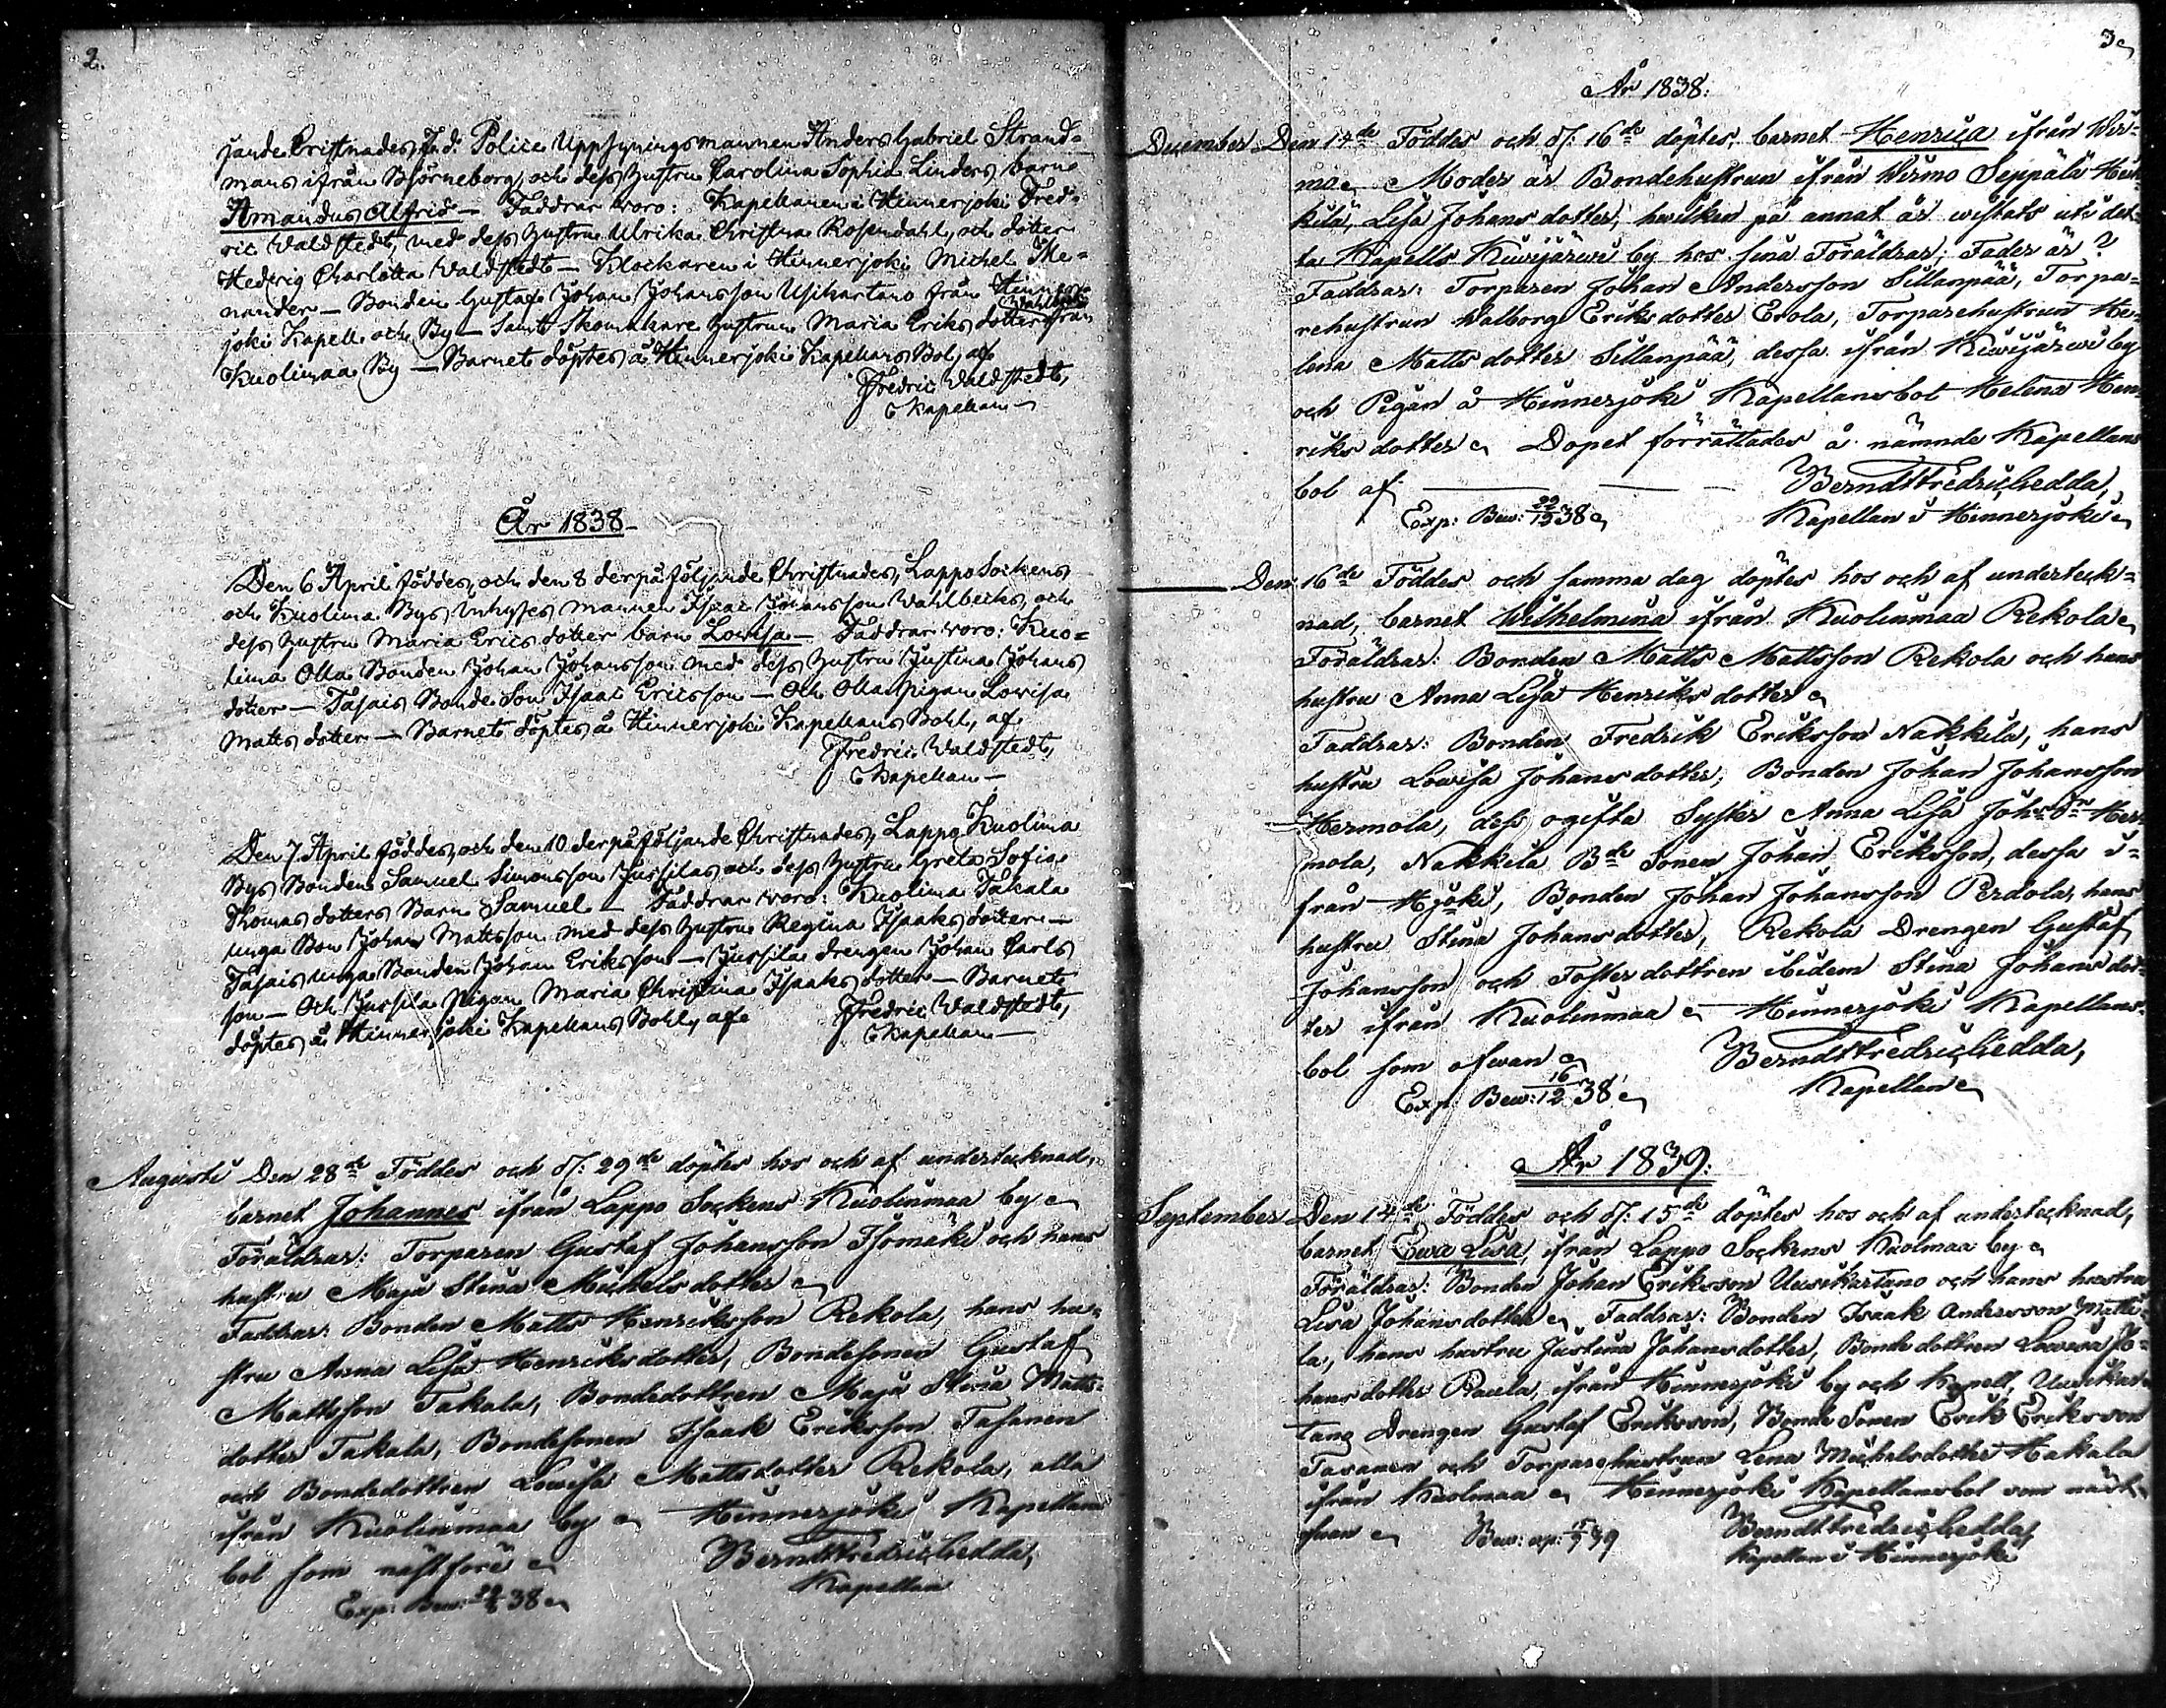 2.
jande Cristnades, Frd: Police Uppsyningsmannen Anders Gabriel Strand=
mans ifrån Björneborg, och dess hustru Carolina Sophia Linders, barn
Amandus Alfrid — Faddrar voro: Kapellanen i Hinnerjoki Fred=
ric Waldstedt, med dess hustru Ulrika Christina Rosendahl, och dotter
Hedevig Charlotta Waldstedt — Klockaren i Hinnerjoki Michel Me=
nander — Bonden Gustaf Johan Johansson Usikartano från Hinner=
joki Kapell och By — Samt Skomakare hustrun Maria Eriks dotter Wahlbeck från
Kuolimaa By — Barnet döptes å Hinnerjoki Kapellans Bol, af
Fredric Waldstedt,
Kapellan —
År 1838 —
Den 6 April föddes, och den 8 derpåföljande Christnades, Lappo Sockens
och Kuolima Bys Inhyses mannen Isaac Johansson Wahlbecks, och
dess hustru Maria Erics dotter barn Lovisa — Faddrar voro: Kuo=
lima Olla Bonden Johan Johansson med dess hustru Justina Johans
dotter — Tasais Bonde Son Isaac Ericsson — Och Olla pigan Lovisa
Matts dotter — Barnet döptes å Hinnerjoki Kapellans Bohl, af
Fredric Waldstedt,
Kapellan —
Den 7 April föddes, och den 10 derpåföljande Christnades, Lappo Kuolima
Bys Bonden Samuel Simonsson Jussilas, och dess hustru Greta Sofia
Thomas dotters Barn Samuel — Faddrar voro: Kuolima Takala
unga Bon Johan Mattsson med dess hustru Regina Isaaks dotter —
Tasais unga Bonden Johan Eriksson — Jussila drengen Johan Carls
son — Och Jussila Pigan Maria Christina Isaaks dotter — Barnet
döptes å Hinnerjoki Kapellans Bohl, af Fredric Waldstedt,
Kapellan —
Augusti Den 28de Föddes och d/: 29de döptes hos och af undertecknad,
barnet Johannes ifrån Lappo Sockens Kuolinmaa by
Föräldrar: Torparen Gustaf Johansson Isomäki och hans
hustru Maja Stina Michelsdotter
Faddrar: Bonden Matts Henriksson Rekola, hans hu=
stru Anna Lisa Henriksdotter, Bondesonen Gustaf
Mattsson Takala, Bondedottren Maja Stina Matts=
dotter Takala, Bondesonen Isaak Eriksson Tasanen
och Bondedottren Lovisa Mattsdotter Rekola, alla
ifrån Kuolinmaa by Hinnerjoki Kapellans
bol som nästföre Berndt Fredric Hedda,
Kapellan
Exp: Bew: 38
3
År 1838:
December Den 14de Föddes och d/: 16de döptes, barnet Henrica ifrån Wir=
mo Moder är Bondehustrun ifrån Wirmo Seppälä Heik=
kilä, Lisa Johansdotter, hvilken på annat år vistats uti det=
ta Kapells Kiwijärwi by hos sina Föräldrar; Fader är?
Faddrar: Torparen Johan Andersson Sillanpää, Torpa=
rehustrun Walborg Eriksdotter Erola, Torparehustrun He=
lena Mattsdotter Sillanpää, dessa ifrån Kiwijärwi by
och Pigan å Hinnerjoki Kapellansbol Helena Hen=
riksdotter Dopet förrättades å nämnde Kapellans
bol af Berndt Fredric Hedda,
Exp: Bew: 22/12 38 Kapellan i Hinnerjoki
Den 16de Föddes och samma dag döptes hos och af underteck=
nad, barnet Wilhelmina ifrån Kuolinmaa Rekola
Föräldrar: Bonden Matts Mattsson Rekola och hans
hustru Anna Lisa Henriksdotter
Faddrar: Bonden Fredrik Eriksson Nakkila, hans
hustru Lowisa Johansdotter; Bonden Johan Johansson
Hermola, dess ogifta Syster Anna Lisa Johsdr Her=
mola, Nakkila Bde Sonen Johan Eriksson, dessa i=
från Hjoki, Bonden Johan Johansson Perdola, hans
hustru Stina Johansdotter, Rekola Drengen Gustaf
Johansson och Fosterdottren ibidem Stina Johansdot=
ter ifrån Kuolinmaa Hinnerjoki Kapellans=
bol som ofwan Berndt Fredric Hedda,
Exp: Bew: 16/12 38 Kapellan
År 1839:
September Den 14de Föddes och d/: 15de döptes hos och af undertecknad,
barnet Ewa Lisa, ifrån Lappo Sockens Kuolmaa by
Föräldrar: Bonden Johan Eriksson Uusikartano och hans hustru
Lisa Johansdotter Faddrar: Bonden Isaak Andersson Matti=
la, hans hustru Justina Johansdotter, Bondedottren Lowisa Jo=
hansdotter Raula, ifrån Hinnerjoki by och Kapell, Uusikar=
tano Drengen Gustaf Eriksson, Bonde Sonen Erik Eriksson
Tasanen och Torparehustrun Lena Michelsdotter Hakala
ifrån Kuolmaa Hinnerjoki Kapellansbol som näst
ofwan Bew: exp: 39 Berndt Fredric Hedda,
Kapellan i Hinnerjoki